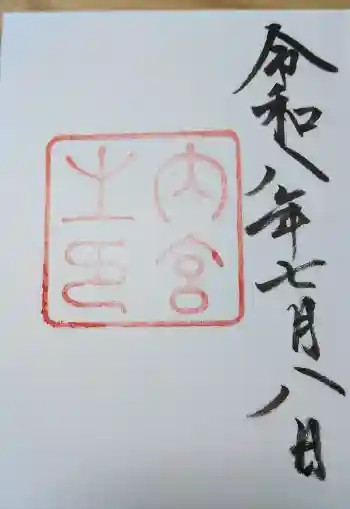 令和八年七月八日
内宮
之印